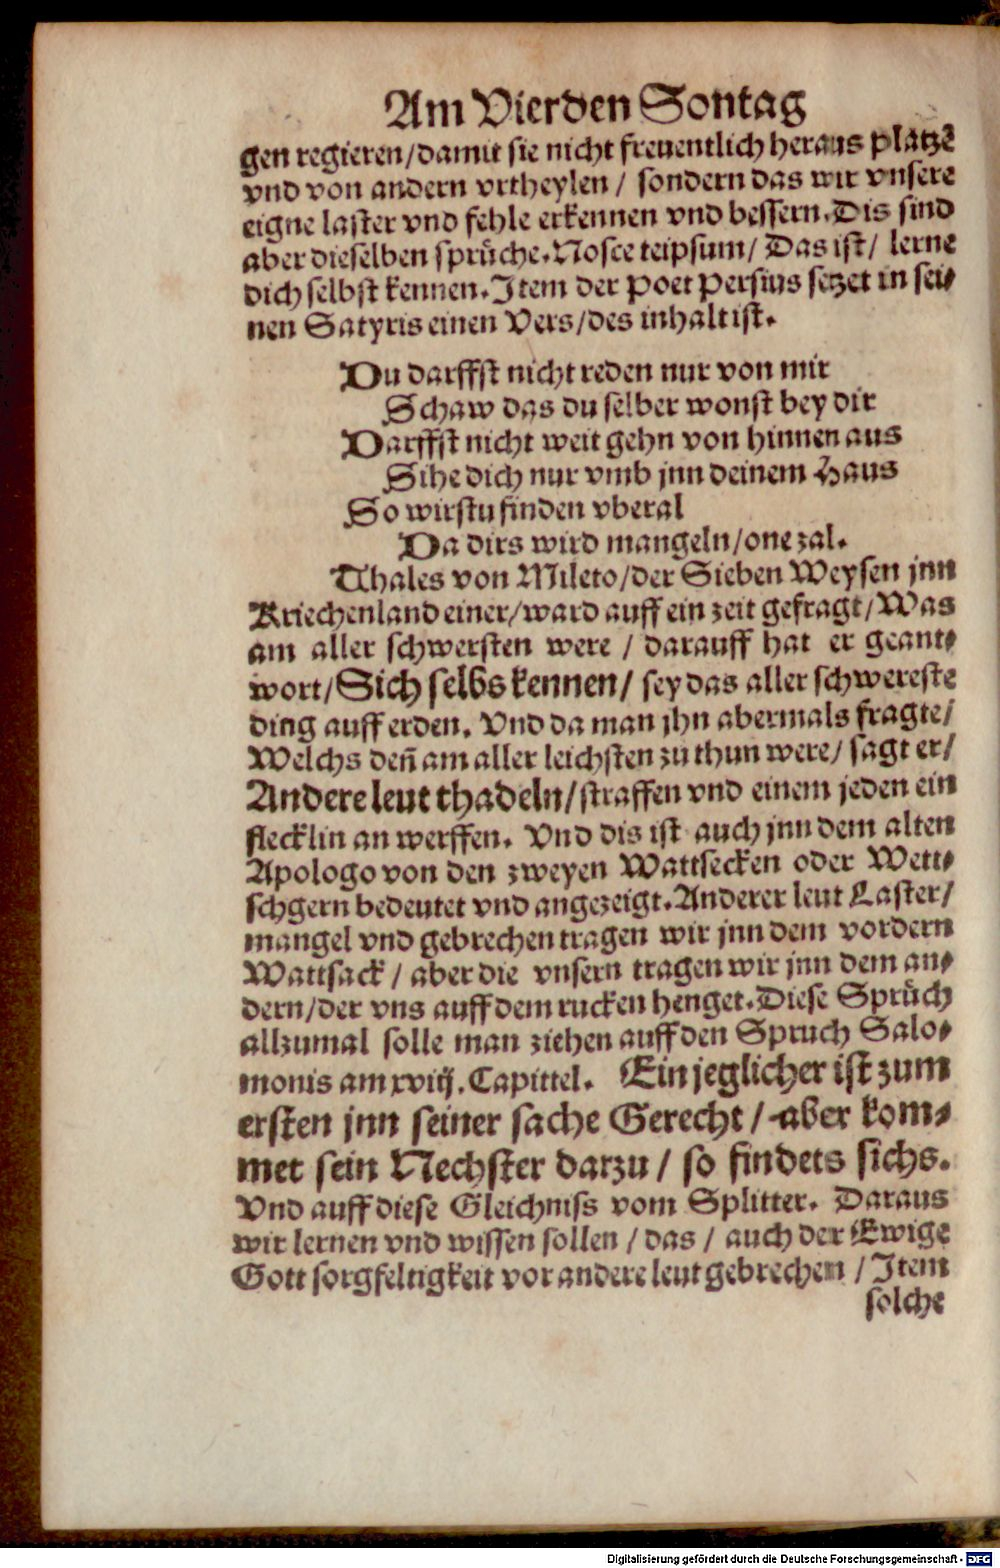 Am Vierden Sontag
gen regieren/damit sie nicht freuentlich heraus platzē
vnd von andern vrtheylen / sondern das wir vnsere
eigne laster vnd fehle erkennen vnd bessern. Dis sind
aber dieselben sprüche. Nosce teipsum/ Das ist/ lerne
dich selbst kennen. Item der Poet Persius setzet in sei-
nen Satyris einen Vers/des inhalt ist.
Du darffst nicht reden nur von mir
Schaw das du selber wonst bey dir
Darffst nicht weit gehn von hinnen aus
Sihe dich nur vmb jnn deinem Haus
So wirstu finden vberal
Da dirs wird mangeln/one zal.
Thales von Mileto/der Sieben Weysen jnn
Kriechenland einer/ward auff ein zeit gefragt/Was
am aller schwersten were / darauff hat er geant-
wort/Sich selbs kennen/ sey das aller schwereste
ding auff erden. Vnd da man jhn abermals fragte/
Welchs deñ am aller leichsten zu thun were/ sagt er/
Andere leut thadeln/straffen vnd einem jeden ein
flecklin an werffen. Vnd dis ist auch jnn dem alten
Apologo von den zweyen Wattsecken oder Wett-
schgern bedeutet vnd angezeigt. Anderer leut Laster/
mangel vnd gebrechen tragen wir jnn dem vordern
Wattsack / aber die vnsern tragen wir jnn dem an-
dern/der vns auff dem rucken henget. Diese Sprüch
allzumal solle man ziehen auff den Spruch Salo-
monis am xviij. Capittel. Ein jeglicher ist zum
ersten jnn seiner sache Gerecht / aber kom-
met sein Nechster darzu / so findets sichs.
Vnd auff diese Gleichniss vom Splitter. Daraus
wir lernen vnd wissen sollen / das / auch der Ewige
Gott sorgfeltigkeit vor andere leut gebrechen / Item
solche
Digitalisierung gefördert durch die Deutsche Forschungsgemeinschaft - DFG